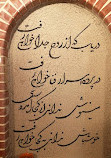 در یاب که از روح جدا خواهی رفت
در پرده اسرار فنا خواهی رفت
می نوش ندانی ز کجا آمده‌ای
خوش باش ندانی به کجا خواهی رفت